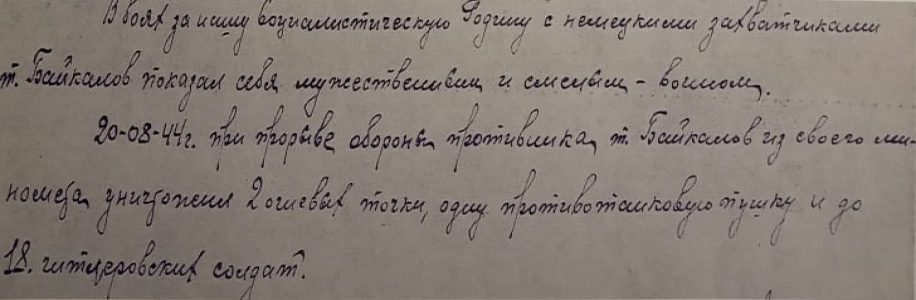 В боях за нашу социалистическую Родину с немецкими захватчиками
т. Байкалов показал себя мужественным и смелым - воином.
20-08-44г. при прорыве обороны противника, т. Байкалов из своего ми-
номета уничтожил 2 огневых точки, одну противотанковую пушку и до
18. гитлеровских солдат.